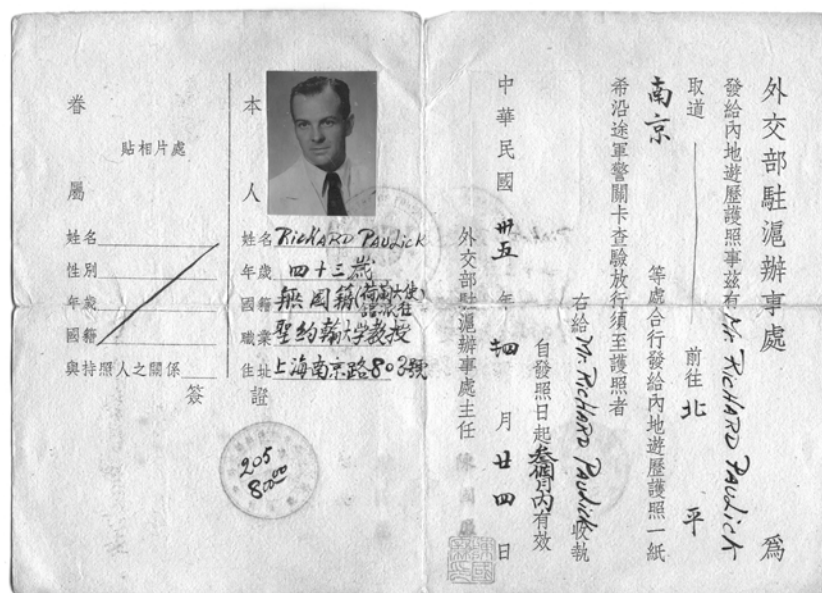 外交部駐滬辦事處 為
發給內地遊歷護照事茲有 Mr. RICHARD PAULICK
取道 前往 北平
南京 等處合行發給內地遊歷護照一紙
希沿途軍警關卡查驗放行須至護照者
右給 Mr. RICHARD PAULICK 收執
自發照日起叁個月內有效
中華民國卅五年四月廿四日
外交部駐滬辦事處主任 陳國
本人
姓名 RICHARD PAULICK
年歲 四十三歲
國籍 無國籍
職業 聖約翰大學教授
住址 上海南京路803號
眷屬
貼相片處
姓名
性別
年歲
國籍
與持照人之關係
簽證
205
800.00